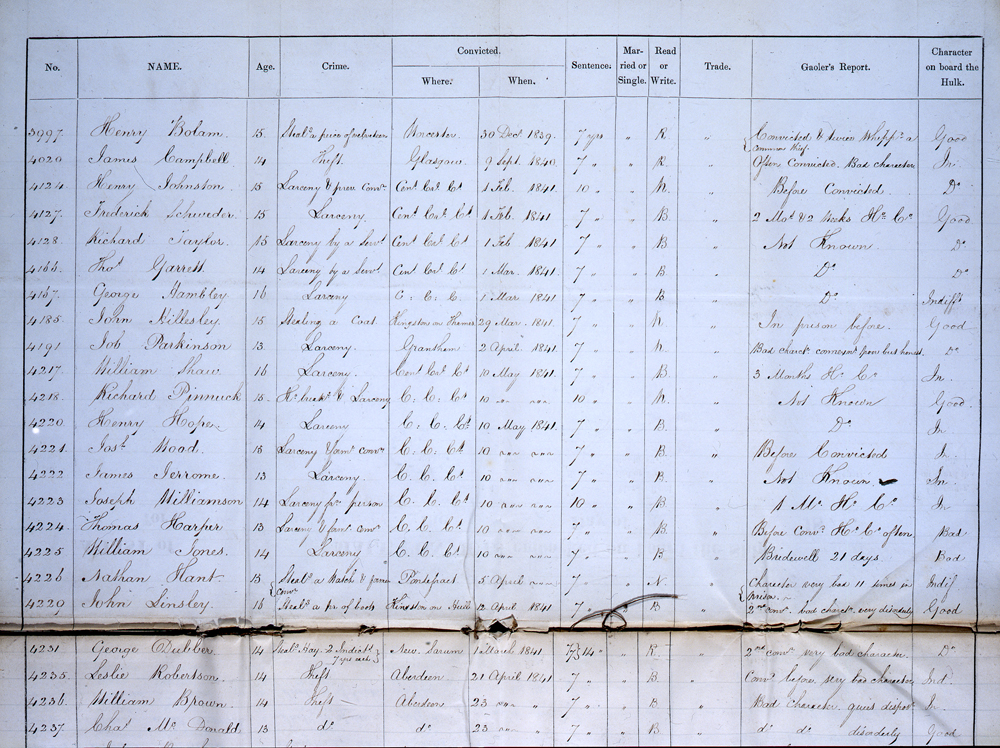 No. NAME. Age. Crime. Convicted. Where: When. Sentence: Married or Single. Read or Write. Trade. Gaoler's Report. Character on board the Hulk.
3997. Henry Bolam. 15. Steal.g a piece of Worcester. 30 Decr. 1839. 7 yrs " R. " Convicted & twice Whipp.d a common thief. Good
4020. James Campbell. 14 Theft. Glasgow. 9 Sept. 1840. 7 " " R. " Often Convicted. Bad character In:
4124. Henry Johnston. 15 Larceny & prev. Conv.n Cent. Crl. Ct 1 Feb. 1841. 10 " " " Before Convicted Do
4127. Frederick Schweder. 15 Larceny. Cent. Crl. Ct. 1 Feb. 1841 7 " " B " 2 Mos. & 2 Weeks Hs. Cn. Good
4128. Richard Taylor. 15 Larceny by a Servt. Cent Crl. Ct 1 Feb 1841 7 " " B " Not Known. Do
4166. Thos. Garrett. 14 Larceny by a Servt. Cent Crl Ct 1 Mar. 1841. 7 " " B. " Do. Do
4167. George Hambley. 16 Larceny C: C: C. 1 Mar 1841 7 " " B " Do. Indifft.
4185. John Nillesley. 15 Stealing a Coat. Kingston on Thames 29 Mar. 1841. 7 " " " In prison before. Good
4191 Job Parkinson 13. Larceny. Grantham 2 April. 1841. 7 " " " Bad charctr. poor but honest. Do.
4217. William Shaw 16 Larceny. Cent Crl Ct. 10 May 1841. 7 " " B " 3 Months Hs. Cn. In.
4218. Richard Pinnuck 15. Hs. break.g & Larceny C: C: Ct 10 " " 10 " " " Not Known Good.
4220 Henry Hope. 14 Larceny C: C: Ct. 10 May 1841. 7 " " B. " Do. In.
4221. Jos.h Wood. 15 Larceny & form.r conv. C. C. Ct. 10 " " 7 " " B. " Before Convicted In.
4222 James Jerrome. 13. Larceny. C. C. Ct. 10 " " 7 " " B. " Not Known In.
4223 Joseph Williamson 14 Larceny fr. person C. C. Ct. 10 " " 10 " " B " 1 Mo. Hs. Cn. In
4224. Thomas Harper 13 Larceny & prev. conv. C. C. Ct. 10 " " 7 " " B " Before Conv. Hs. Cn. often. Bad
4225 William Jones. 14 Larceny C. C. Ct. 10 " " 7 " " B. " Bridewell 21 days. Bad
4226 Nathan Hant. 13 Steal.g a Watch & prev. conv. Pontefract 5 April " 7 " " N. " Character very bad 11 times in prison. Indif
4220 John Linsley. 16 Steal.g a pr. of boots Kingston on Hull 12 April. 1841 7 " " B " 2nd. conv. bad charctr. very disorderly Good
4231. George Dubber. 14 Steal.g Hay. 2 Indictts. 7 yrs each New Sarum 1 March 1841 7/7} 14 " " R. " 2nd. conv. very bad character. Do
4235. Leslie Robertson. 14 Theft Aberdeen. 21 April 1841 7 " " B. " Conv. before, very bad character. Ind.
4236. William Brown. 14 Theft Aberdeen 23 " " 7 " " B " Bad Character, quiet dispos.n In.
4237. Chas. Mc. Donald. 13 do. do. 23 " " 7 " " B " do. do. disorderly Good